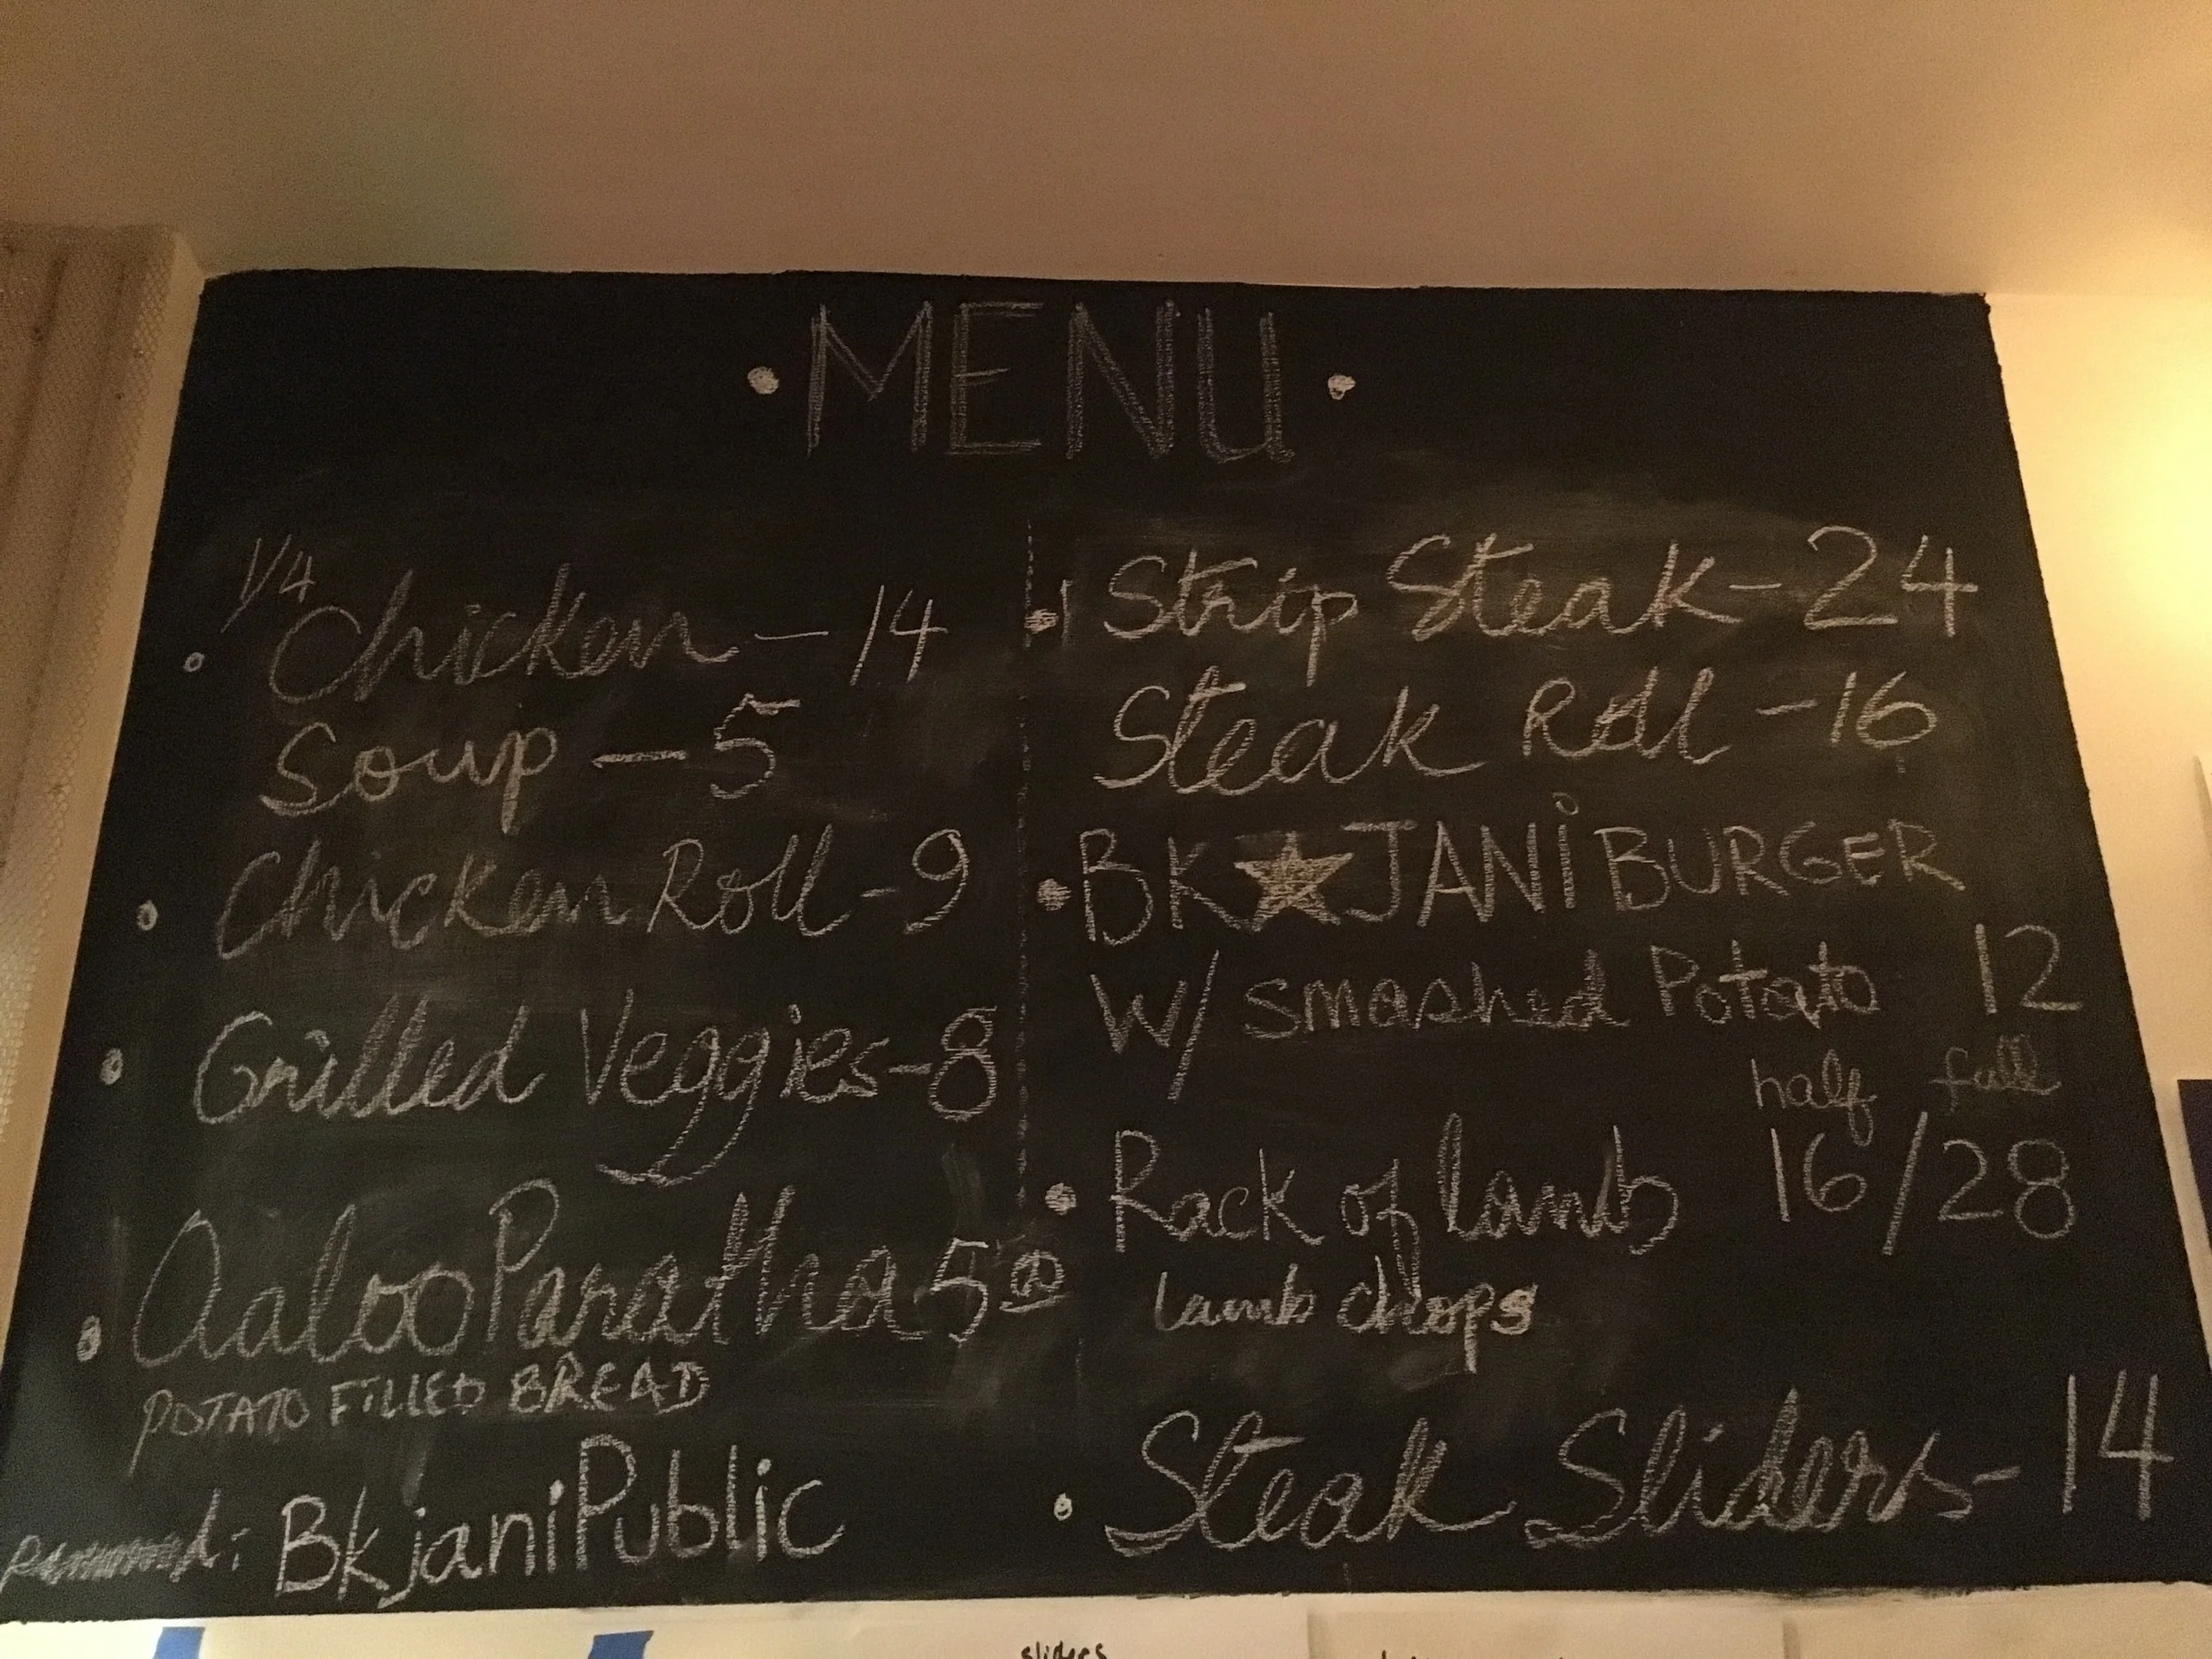 • MENU •
1/4
• Chicken — 14
Soup — 5
• Chicken Roll - 9
• Grilled Veggies - 8
• Aaloo Paratha 5
POTATO FiLLED BREAD
BkjaniPublic
• Strip Steak - 24
Steak Roll - 16
• BK★JANi BURGER
W/ smashed Potato 12
half full
• Rack of lamb 16/28
lamb chops
• Steak Sliders - 14
sliders